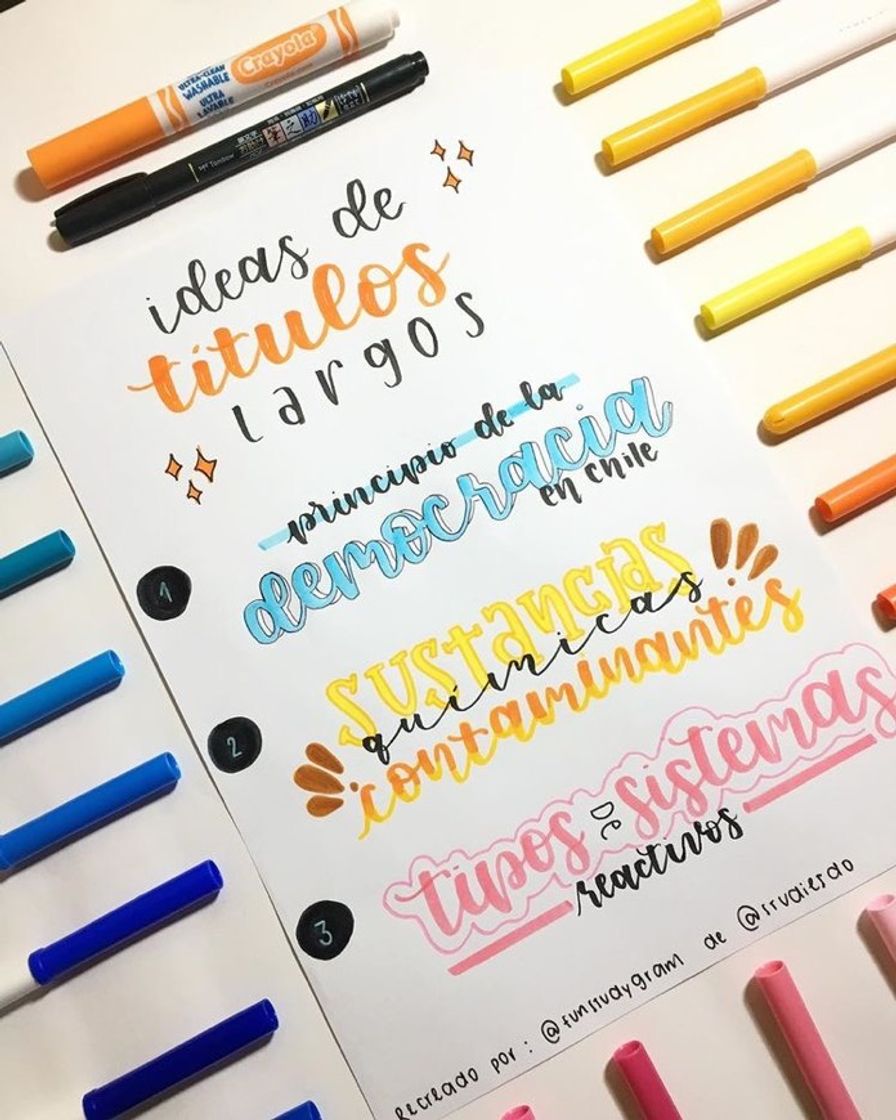 ULTRA-CLEAN
WASHABLE
ULTRA
LAVABLE
Crayola
Tombow
筆之助
ideas de
títulos
largos
1
principio de la
democracia
en chile
2
sustancias
químicas
contaminantes
3
tipos de sistemas
reactivos
Recreado por: @funstudygram de @studiesdo